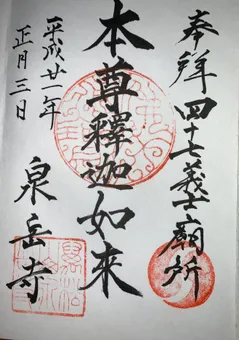 奉拜 四十七義士廟所
本尊釋迦如來
平成廿一年
正月三日
泉岳寺